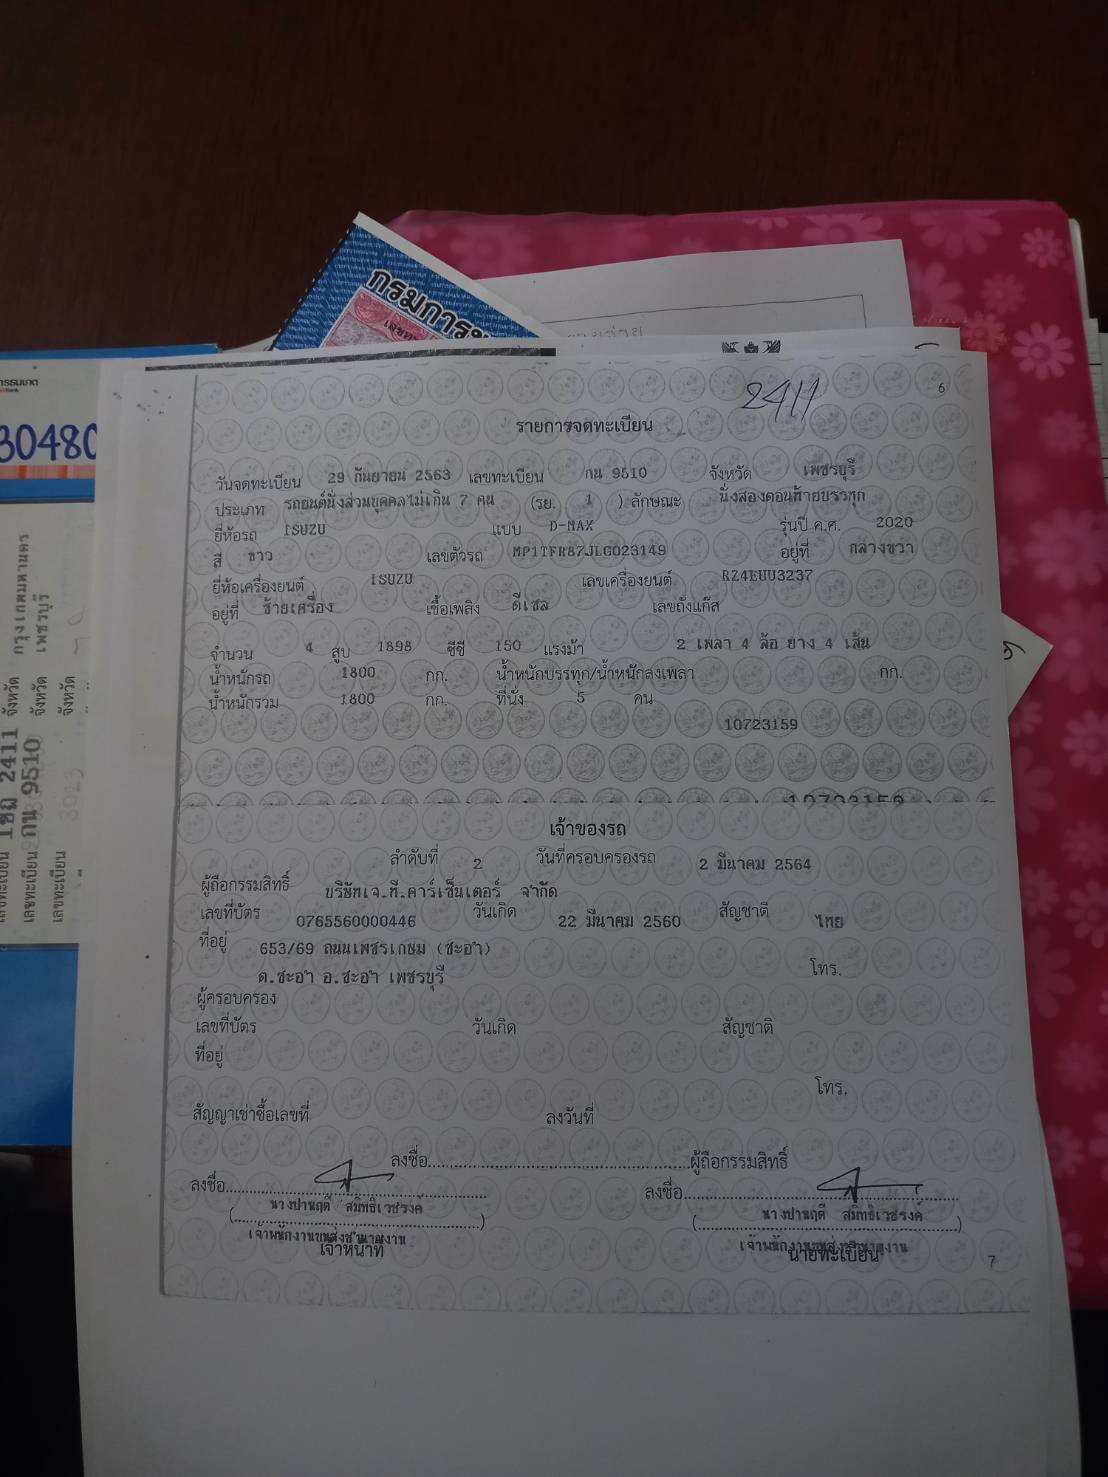 กรมการข
เลขท
กรรมชาติ
Bank
30480
เลขทะเบียน 1ขฌ 2411 จังหวัด กรุงเทพมหานคร
เลขทะเบียน กน 9510 จังหวัด เพชรบุรี
เลขทะเบียน จังหวัด
2411
6
รายการจดทะเบียน
วันจดทะเบียน 29 กันยายน 2563 เลขทะเบียน กน 9510 จังหวัด เพชรบุรี
ประเภท รถยนต์นั่งส่วนบุคคลไม่เกิน 7 คน (รย. 1 ) ลักษณะ นั่งสองตอนท้ายบรรทุก
ยี่ห้อรถ ISUZU แบบ D-MAX รุ่นปี ค.ศ. 2020
สี ขาว เลขตัวรถ MP1TFR87JLG023149 อยู่ที่ กลางขวา
ยี่ห้อเครื่องยนต์ ISUZU เลขเครื่องยนต์ RZ4EUU3237
อยู่ที่ ซ้ายเครื่อง เชื้อเพลิง ดีเซล เลขถังแก๊ส
จำนวน 4 สูบ 1898 ซีซี 150 แรงม้า 2 เพลา 4 ล้อ ยาง 4 เส้น
น้ำหนักรถ 1800 กก. น้ำหนักบรรทุก/น้ำหนักลงเพลา กก.
น้ำหนักรวม 1800 กก. ที่นั่ง 5 คน
10723159
10723159
เจ้าของรถ
ลำดับที่ 2 วันที่ครอบครองรถ 2 มีนาคม 2564
ผู้ถือกรรมสิทธิ์ บริษัทเจ.ที.คาร์เซ็นเตอร์ จำกัด
เลขที่บัตร 0765560000446 วันเกิด 22 มีนาคม 2560 สัญชาติ ไทย
ที่อยู่ 653/69 ถนนเพชรเกษม (ชะอำ)
ต.ชะอำ อ.ชะอำ เพชรบุรี โทร.
ผู้ครอบครอง
เลขที่บัตร วันเกิด สัญชาติ
ที่อยู่
โทร.
สัญญาเช่าซื้อเลขที่ ลงวันที่
ลงชื่อ ผู้ถือกรรมสิทธิ์
ลงชื่อ ลงชื่อ
(นางปานฤดี สมิทธิเวชรงค์) (นางปานฤดี สมิทธิเวชรงค์)
เจ้าพนักงานขนส่งชำนาญงาน เจ้าพนักงานขนส่งชำนาญงาน
เจ้าหน้าที่ นายทะเบียน
7